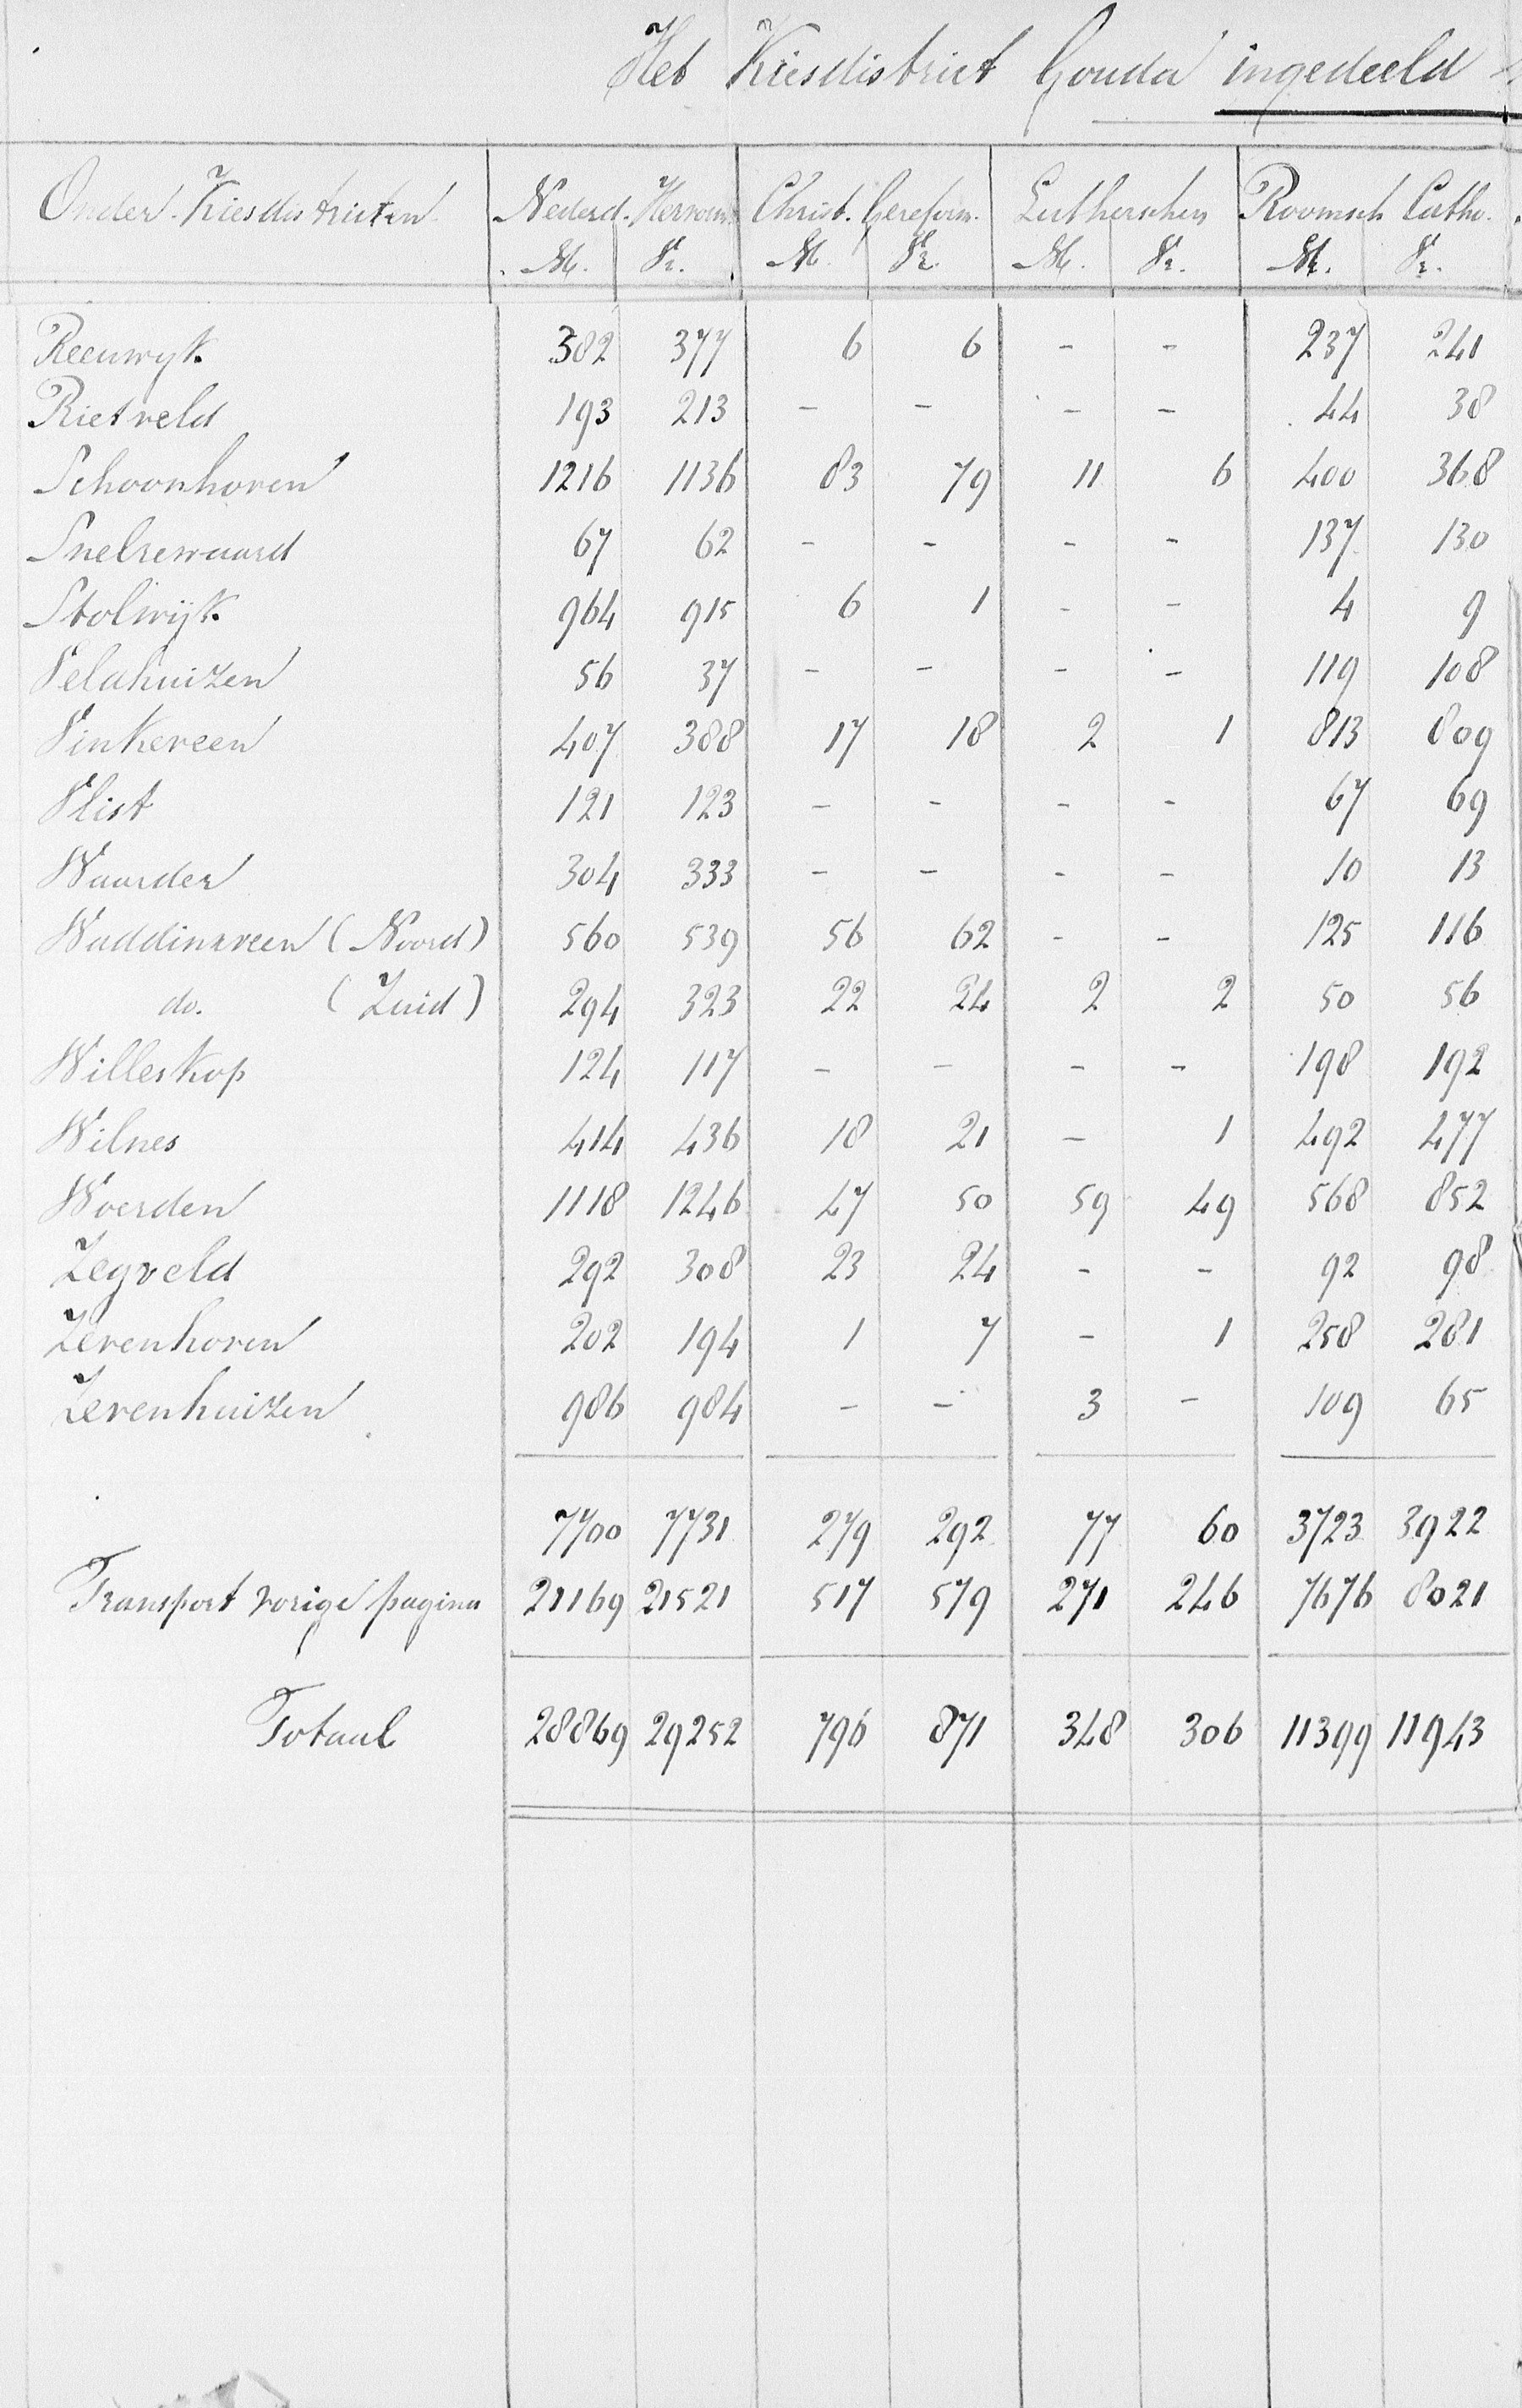 Het Kiesdistrict Gouda ingedeeld
Onder-Kiesdistricten Nederd. Hervorm. Christ. Gereform. Lutherschen Roomsch Catho.
M. Vr. M. Vr. M. Vr. M. Vr.
Reeuwyk 382 377 6 6 - - 237 241
Rietveld 193 213 - - - - 44 38
Schoonhoven 1216 1136 83 79 11 6 400 368
Snelrewaard 67 62 - - - - 137 130
Stolwijk 964 915 6 1 - - 4 9
Velahuizen 56 37 - - - - 119 108
Vinkeveen 407 388 17 18 2 1 813 809
Vlist 121 123 - - - - 67 69
Waarder 304 333 - - - - 10 13
Waddinxveen (Noord) 560 539 56 62 - - 125 116
do. (Zuid) 294 323 22 24 2 2 50 56
Willeskop 124 117 - - - - 198 192
Wilnes 414 436 18 21 - 1 492 477
Woerden 1118 1246 47 50 59 49 568 852
Zegveld 292 308 23 24 - - 92 98
Zevenhoven 202 194 1 7 - 1 258 281
Zevenhuizen 986 984 - - 3 - 109 65
7700 7731 279 292 77 60 3723 3922
Transport vorige pagina 21169 21521 517 579 271 246 7676 8021
Totaal 28869 29252 796 871 348 306 11399 11943